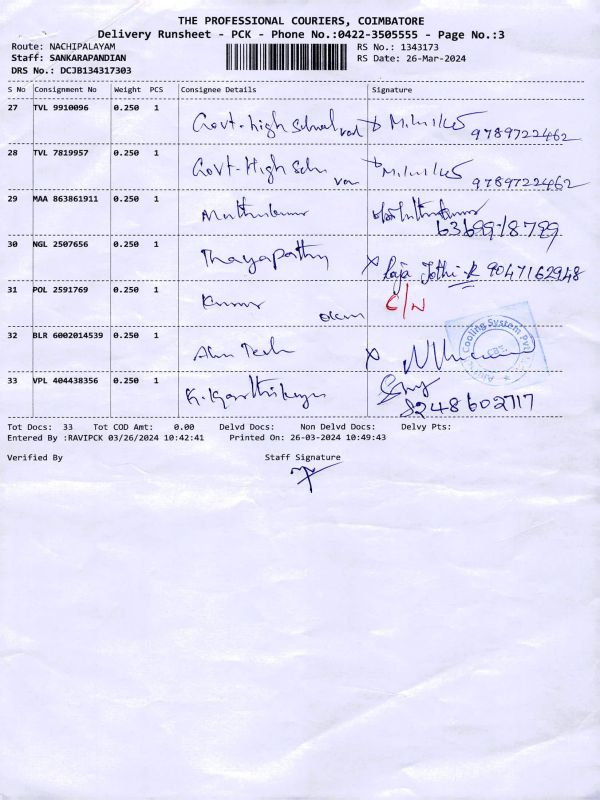 THE PROFESSIONAL COURIERS, COIMBATORE
Delivery Runsheet - PCK - Phone No.:0422-3505555 - Page No.:3
Route: NACHIPALAYAM RS No.: 1343173
Staff: SANKARAPANDIAN RS Date: 26-Mar-2024
DRS No.: DCJB134317303
S No Consignment No Weight PCS Consignee Details Signature
27 TVL 9910096 0.250 1 Govt-high school
9789722462
28 TVL 7819957 0.250 1 Govt-High
9789722462
29 MAA 863861911 0.250 1 Muthukumar
63699-18799
30 NGL 2507656 0.250 1 Thayapathy X Raja Jothi-R 9047162948
31 POL 2591769 0.250 1 Kumar C/N
32 BLR 6002014539 0.250 1 X
Cooling System Pvt
CBE
33 VPL 404438356 0.250 1 K.Karthikeyan
8248602717
Tot Docs: 33 Tot COD Amt: 0.00 Delvd Docs: Non Delvd Docs: Delvy Pts:
Entered By :RAVIPCK 03/26/2024 10:42:41 Printed On: 26-03-2024 10:49:43
Verified By Staff Signature